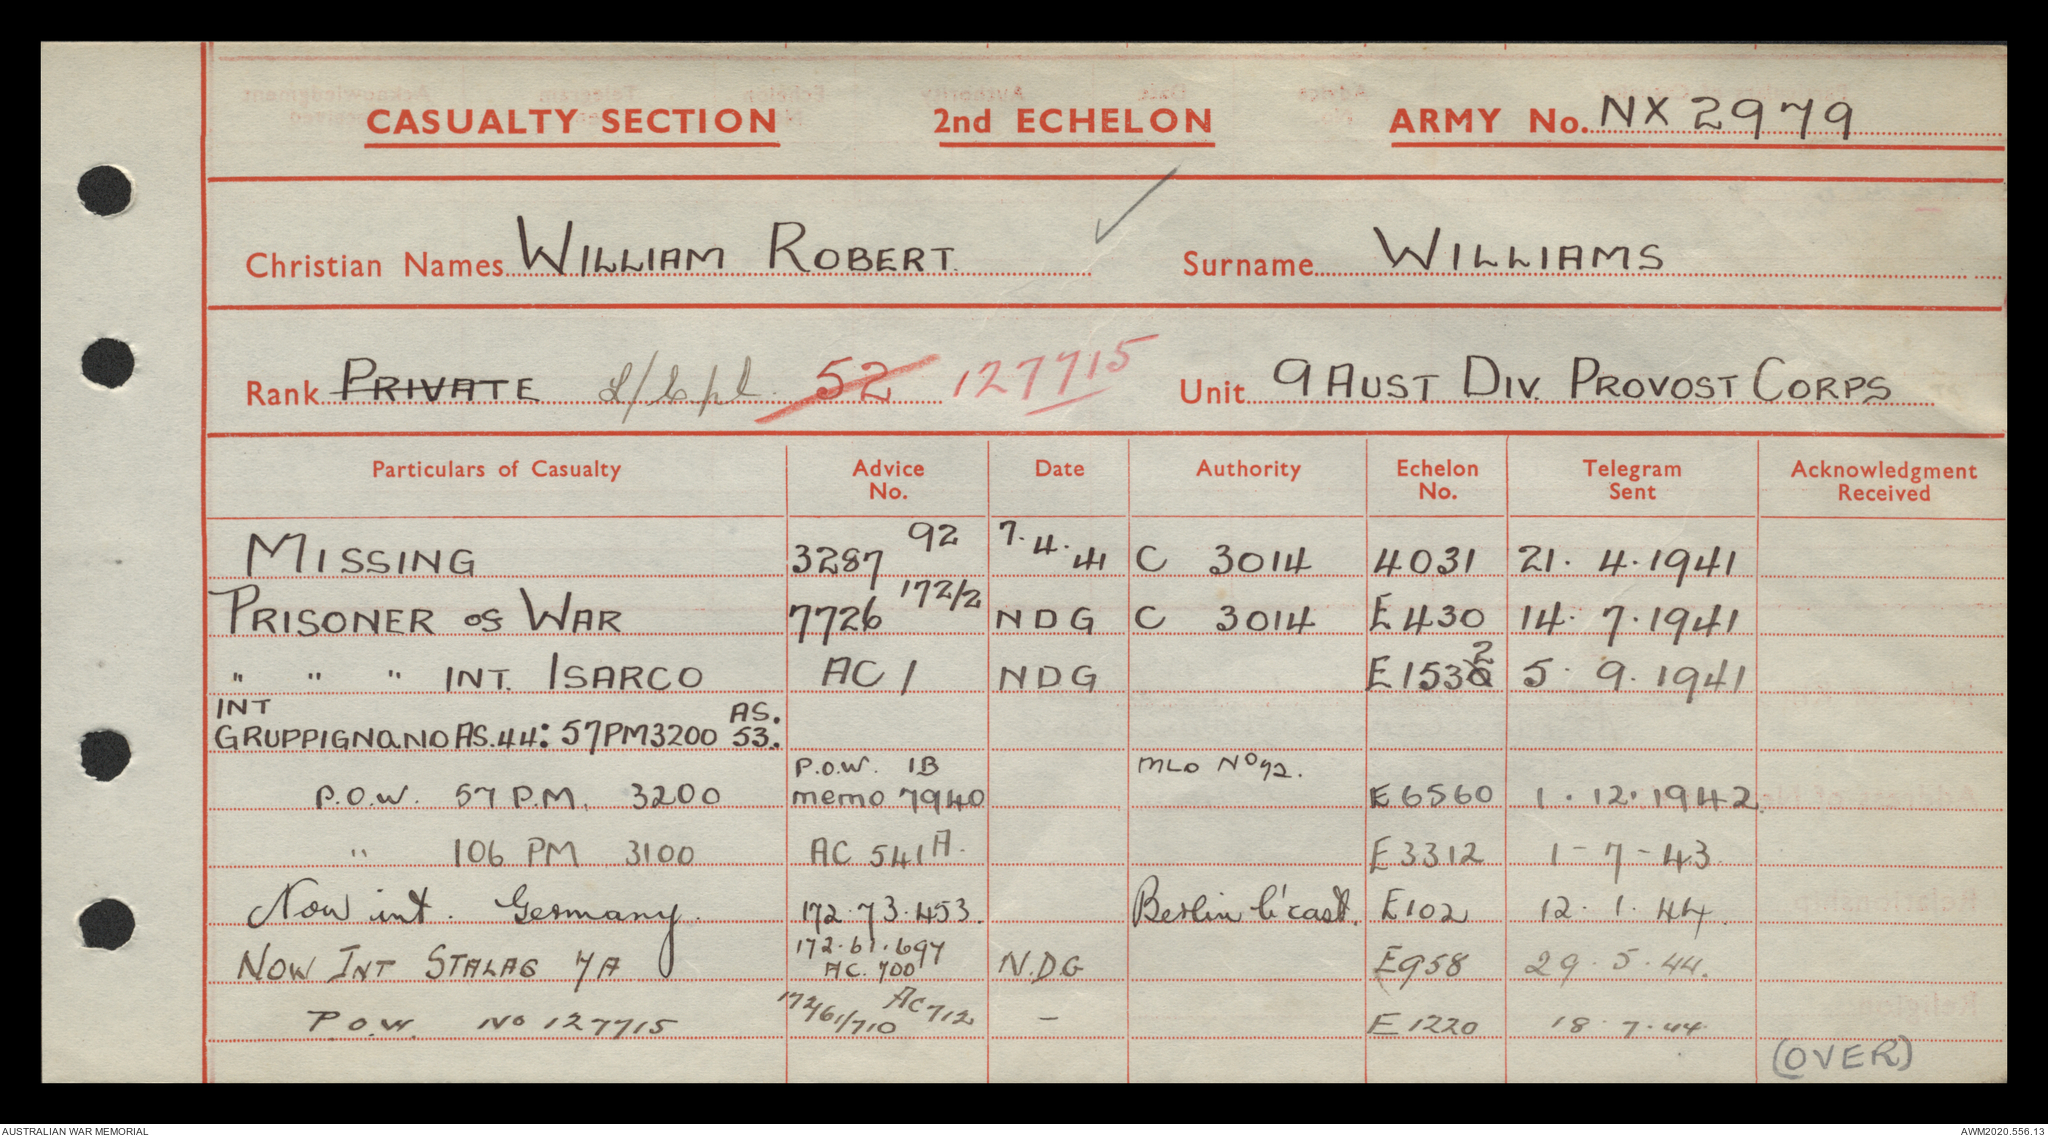 CASUALTY SECTION 2nd ECHELON ARMY No. NX 2979
Christian Names WILLIAM ROBERT. Surname WILLIAMS
Rank PRIVATE L/Cpl. 52 127715 Unit 9 AUST DIV. PROVOST CORPS
Particulars of Casualty Advice No. Date Authority Echelon No. Telegram Sent Acknowledgment Received
MISSING 3287 92 7.4.41 C 3014 4031 21. 4. 1941
PRISONER OF WAR 7726 172/2 NDG C 3014 E430 14. 7. 1941
" " " INT. ISARCO AC 1 NDG E1532 5. 9. 1941
INT
GRUPPIGNANO AS.44: 57PM3200 AS. 53.
P.O.W. 57 P.M. 3200 P.O.W. 1B memo 7940 MLO No 92. E6560 1. 12. 1942.
" 106 PM 3100 AC 541A. E3312 1-7-43
Now int. Germany. 172.73.453. Berlin b'cast. E102 12. 1. 44.
NOW INT STALAG 7A 172.61.697 AC. 700 N.D.G E958 29. 5. 44.
P.O.W. No 127715 172/61/710 AC 712 – E1220 18. 7. 44
(OVER)
AUSTRALIAN WAR MEMORIAL AWM2020.556.13